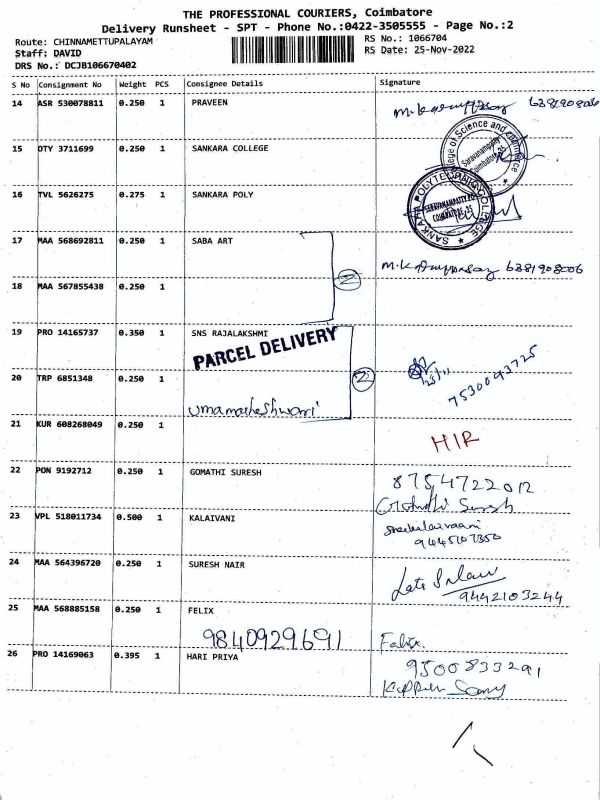 THE PROFESSIONAL COURIERS, Coimbatore
Delivery Runsheet - SPT - Phone No.:0422-3505555 - Page No.:2
Route: CHINNAMETTUPALAYAM RS No.: 1066704
Staff: DAVID RS Date: 25-Nov-2022
DRS No.: DCJB106670402
S No Consignment No Weight PCS Consignee Details Signature
14 ASR 530078811 0.250 1 PRAVEEN 6381908006
15 DTY 3711699 0.250 1 SANKARA COLLEGE
College of Science and Commerce
Saravanampatty
Coimbatore
16 TVL 5626275 0.275 1 SANKARA POLY
SANKARA POLYTECHNIC COLLEGE
SARAVANAMPATTY
COIMBATORE-35
17 MAA 568692811 0.250 1 SABA ART
6381908006
2
18 MAA 567855438 0.250 1
19 PRO 14165737 0.350 1 SNS RAJALAKSHMI
PARCEL DELIVERY
20 TRP 6851348 0.250 1 2 7530043725
umamatheshwari
21 KUR 608268049 0.250 1
HIR
22 PON 9192712 0.250 1 GOMATHI SURESH
8754722012
23 VPL 518011734 0.500 1 KALAIVANI
9445107350
24 MAA 564396720 0.250 1 SURESH NAIR
9442103244
25 MAA 568885158 0.250 1 FELIX
9840929691 Felix.
26 PRO 14169063 0.395 1 HARI PRIYA
9500833291